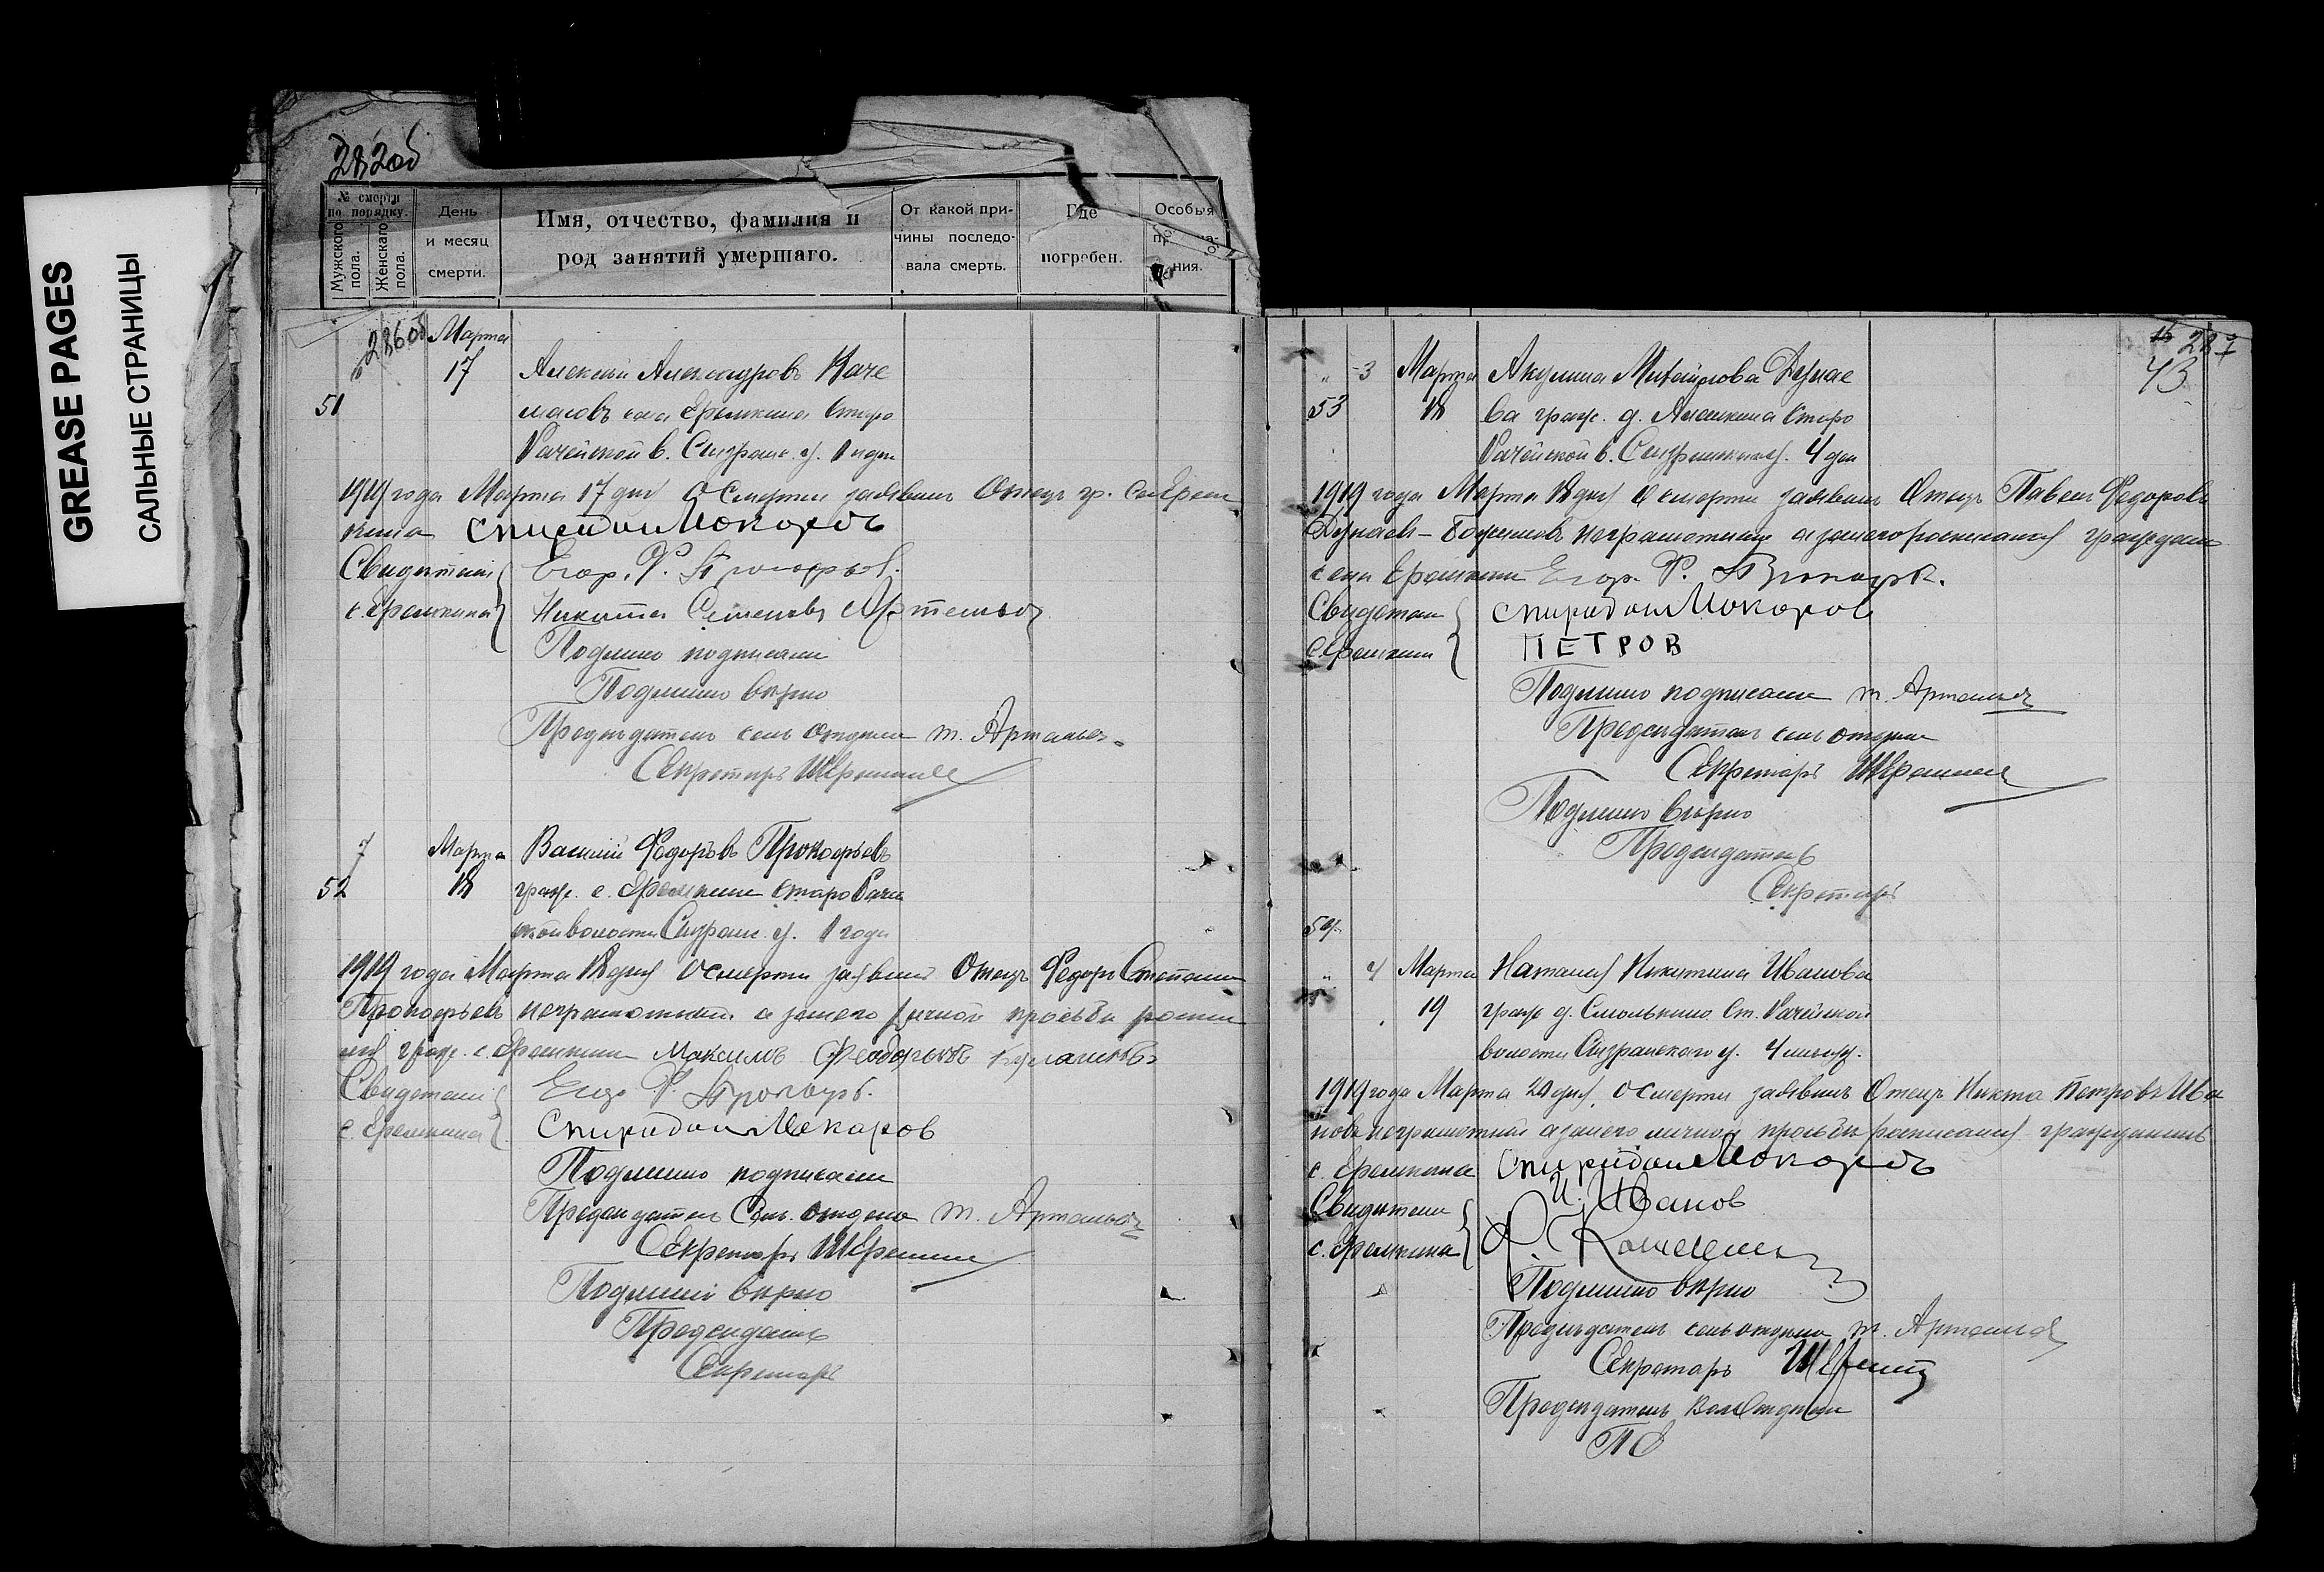 GREASE PAGES
САЛЬНЫЕ СТРАНИЦЫ
282об
№ смерти по порядку.
Мужского пола.
Женскаго пола.
День и месяц смерти.
Имя, отчество, фамилия и род занятий умершаго.
От какой причины последовала смерть.
Где погребен.
Особыя
ния.
286об
Марта
17 Алексей Александровъ Каче
51 масовъ села Еремкина Старо
Рачейской в. Сызран. у. 1
1919 года Марта 17 дня О смерти заявилъ Отецъ гр. сел Ерем
кина Спиридон Мокоровъ
Свидетели Егор. Ф. Прокофьев.
с. Еремкина Никита Семеновъ Артемьев
Подлинно подписали
Подлинно верно
Председатель сель отдела т. Артемьев
Секретарь
7 Марта Василий Федоровъ Прокофьевъ
52 18 граж. с. Еремкина Старо Рачей
ской волости Сызран. у. 1 года
1919 года Марта 18 дня О смерти заявил Отецъ Федоръ Степанов
Прокофьевъ неграмотный а за него личной просьбы роспи
ся граж. с. Еремкина Максимъ
Свидетели Егор Ф. Прокофьев.
с. Еремкина Спиридон Мекаров
Подлинно подписали
Председатель Сель. отдела т. Артемьев
Секретарь
Подлинно верно
Председатель
Секретарь
287
43
3 Марта Акулина Михайлова Дунае
53 18 ва граж. д. Алешкина Старо
Рачейской в. Сызранскаго у. 4 дня
1919 года Марта 18 дня О смерти заявилъ Отецъ Павелъ Федоровъ
Дунаевъ неграмотный а за него росписался гражданин
села Еремкина Егор. Ф. Прокофьев.
Свидетели Спиридон Мокоров
с. Еремкина ПЕТРОВ
Подлинно подписали т. Артемьев
Председатель сель отдела
Секретарь
Подлинно верно
Председатель
Секретарь
54
4 Марта Наталия Никитина Иванова
19 граж д. Смолькино Ст. Рачейской
волости Сызранскаго у. 4 месяц.
1919 года Марта 20 дня, О смерти заявилъ Отецъ Никита Петровъ Ива
новъ неграмотный а за него личной просьбы росписался гражданинъ
с. Еремкина Спиридон Мокоровъ
Свидетели И. Иванов
с. Еремкина Ф.
Подлинно верно
Председатель сель отдела т. Артемьев
Секретарь
Председатель Вол Отдела